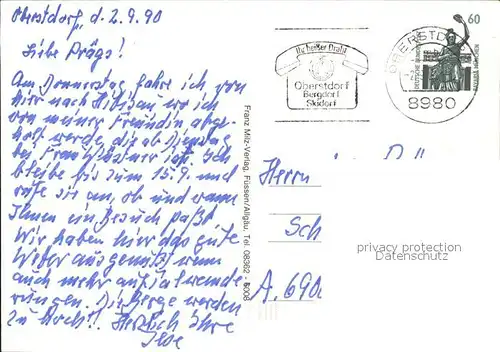 Oberstdorf, d. 2.9.90
Liebe Prägs!
Am Donnerstag fahre ich von
hier nach Hittisau wo ich
von meiner Freundin abge-
holt werde, die ab Dienstag
bei Frau ist. Ich
bleibe bis zum 15.9. und
rufe sie an, ob und wann
Ihnen ein Besuch paßt
Wir haben hier das gute
Wetter ausgenutzt wenn
auch mehr auf
rungen. Die Berge werden
zu hoch!! Herzlich Ihre
Ilse
Franz Milz-Verlag, Füssen/Allgäu, Tel. 08362 - 6008
Ihr heißer Draht
Oberstdorf
Bergdorf
Skidorf
OBERSTDORF
8980
60
DEUTSCHE BUNDESPOST
Herrn
Sch
A. 690
privacy protection
Datenschutz